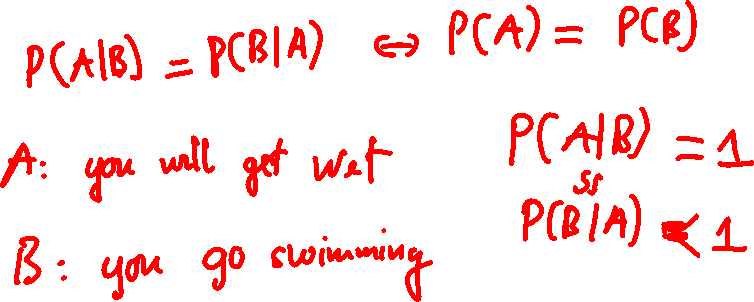 P(A|B) = P(B|A) ⇔ P(A) = P(B)
A: you will get wet
B: you go swimming
P(A|B) = 1
P(B|A) < 1